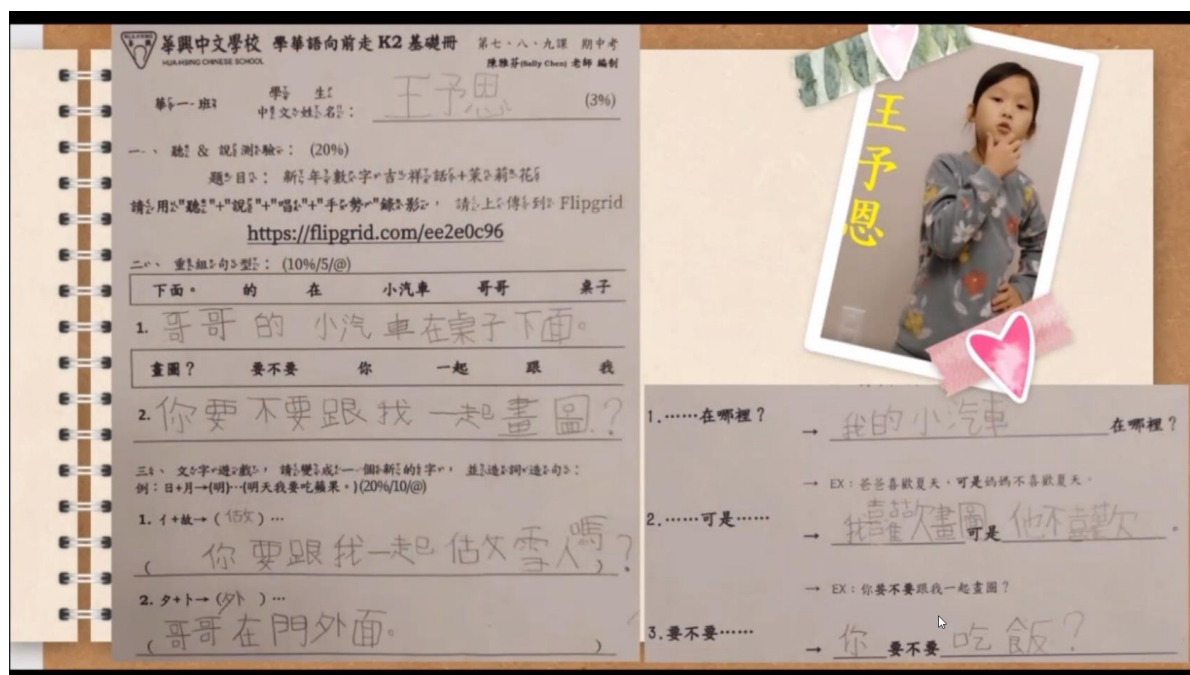 華興中文學校 學華語向前走 K2 基礎冊 第七、八、九課 期中考
HUA-HSING CHINESE SCHOOL
陳雅芬(Sally Chen) 老師 編制
華一班 學生中文姓名： 王予恩 (3%)
一、 聽 & 說測驗： (20%)
題目： 新年數字吉祥話+茉莉花
請用"聽"+"說"+"唱"+"手勢"錄影， 請上傳到 Flipgrid
https://flipgrid.com/ee2e0c96
二、 重組句型： (10%/5/@)
下面。 的 在 小汽車 哥哥 桌子
1. 哥哥的小汽車在桌子下面。
畫圖？ 要不要 你 一起 跟 我
2. 你要不要跟我一起畫圖？
三、 文字遊戲， 請變成一個新的字， 並造詞造句：
例：日+月→(明)…(明天我要吃蘋果。)(20%/10/@)
1. 亻+故→( 做 ) …
( 你要跟我一起做雪人嗎 ) ？
2. 夕+卜→( 外 ) …
( 哥哥在門外面。 )
王予恩
1.……在哪裡？ → 我的小汽車 在哪裡？
→ EX：爸爸喜歡夏天，可是媽媽不喜歡夏天。
2.……可是…… → 我喜歡畫圖 可是 他不喜歡 。
→ EX：你要不要跟我一起畫圖？
3.要不要…… → 你 要不要 吃飯？